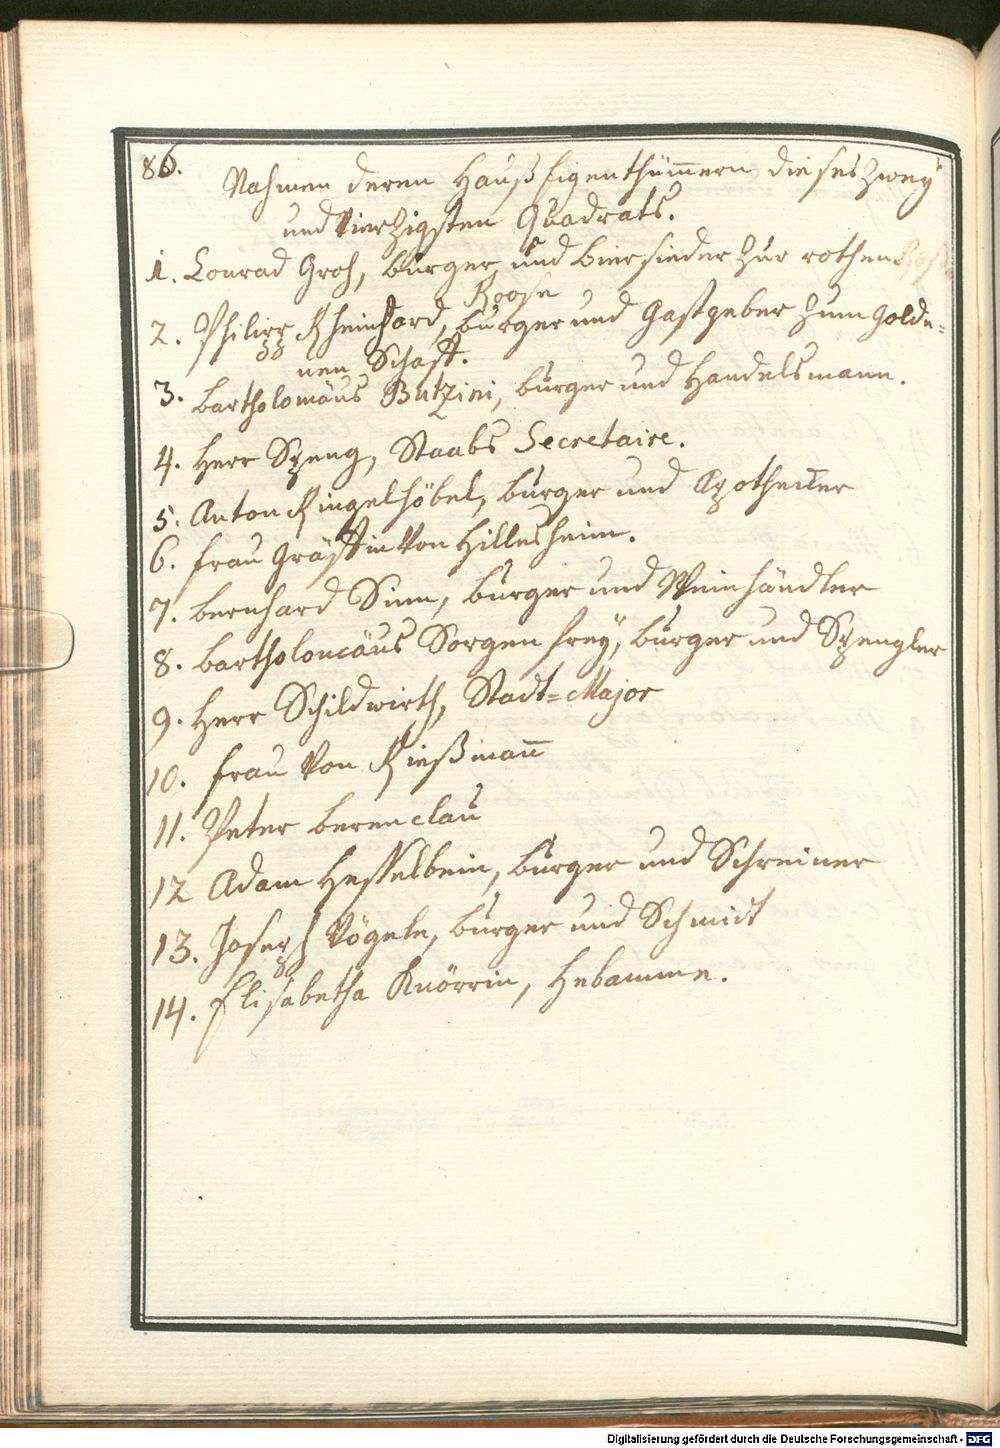 86.
Nahmen deren Hauß Eigenthümern dieses Zwey
und Vierzigsten Quadrats.
1. Conrad Groh, burger und biersieder zur rothen
Roose
2. Philipp Rheinhard, burger und Gastgeber zum Golde-
nen Schaff.
3. bartholomäus Butzini, burger und Handelsmann.
4. Herr Speng, Staabs Secretaire.
5. Anton Ringelhöbel, burger und Apothecker
6. frau Gräffin Von Hillesheim.
7. bernhard Sinn, burger und Weinhändler
8. bartholomäus Sorgenfrey, burger und Spengler
9. Herr Schildwirth, Stadt=Major
10. frau Von Rießmann
11. Peter berenclau
12 Adam Hesselbein, burger und Schreiner
13. Joseph Vögele, burger und Schmidt
14. Elisabetha Knörrin, Hebamme.
Digitalisierung gefördert durch die Deutsche Forschungsgemeinschaft - DFG